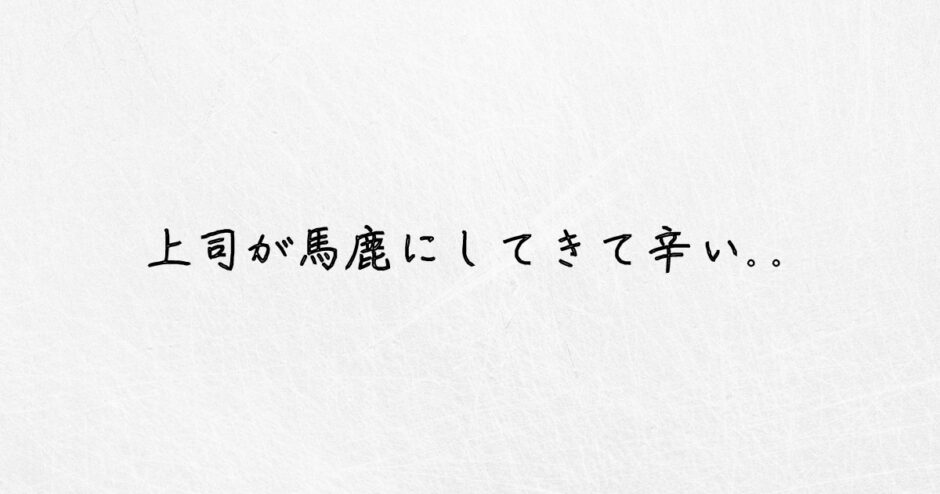 上司が馬鹿にしてきて辛い。。